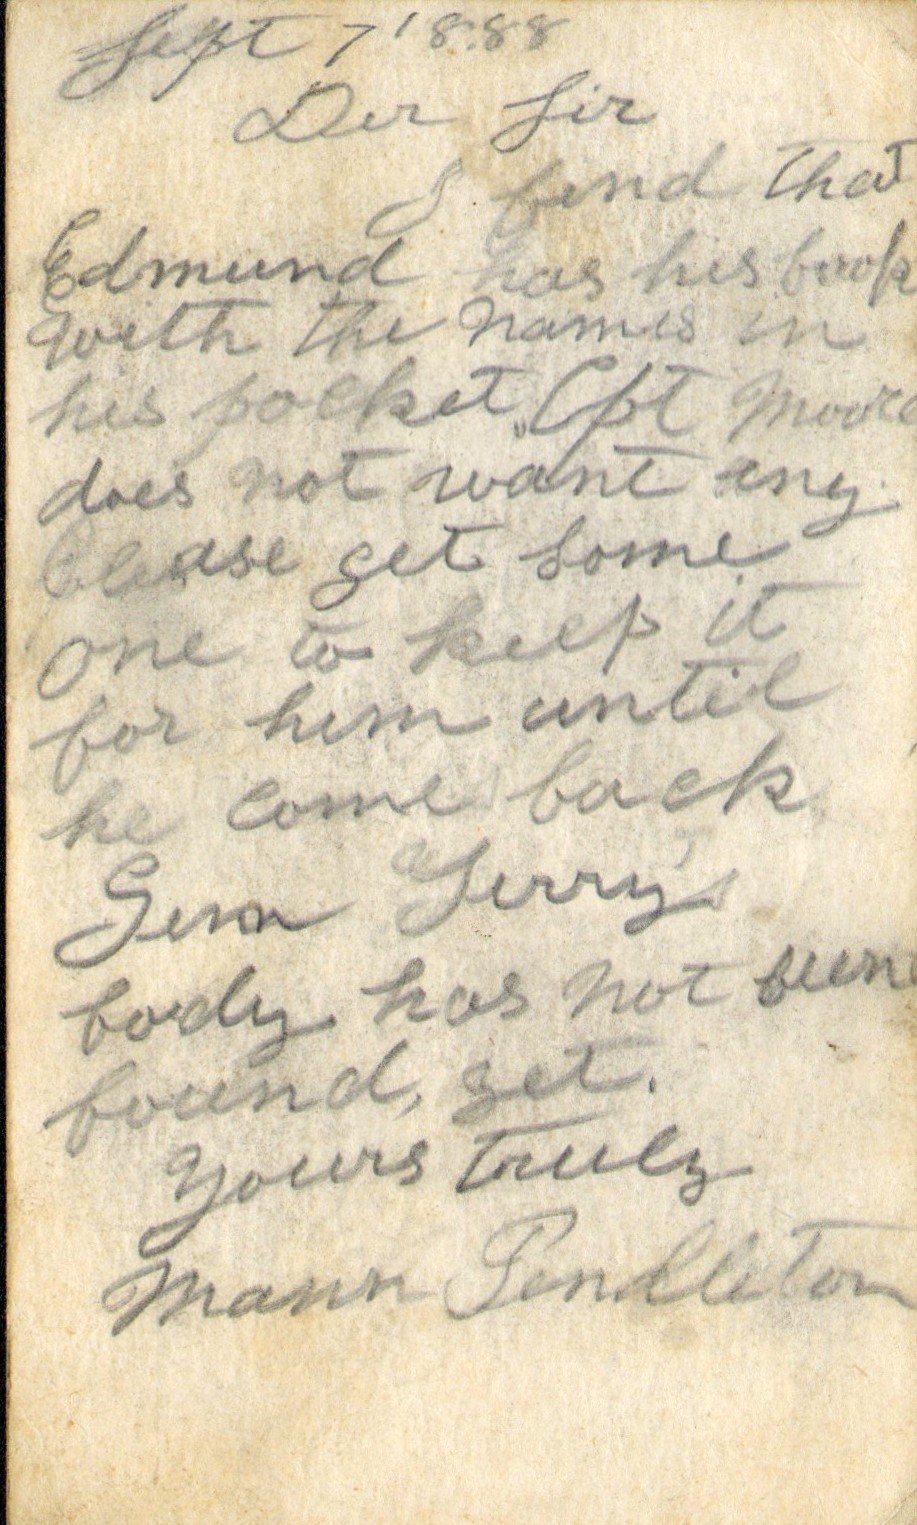 Sept 7 1888
Der Sir
I find that
Edmund has his book
with the names in
his pocket. Cpt Moore
does not want any
Please get some
one to keep it
for him until
he come back
Genn Terry's
body has not been
found, yet.
Yours truly
Mann Pendleton